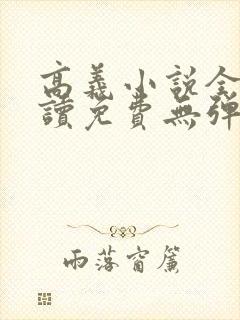 高義小說全
讀免費無彈
雨落窗簾